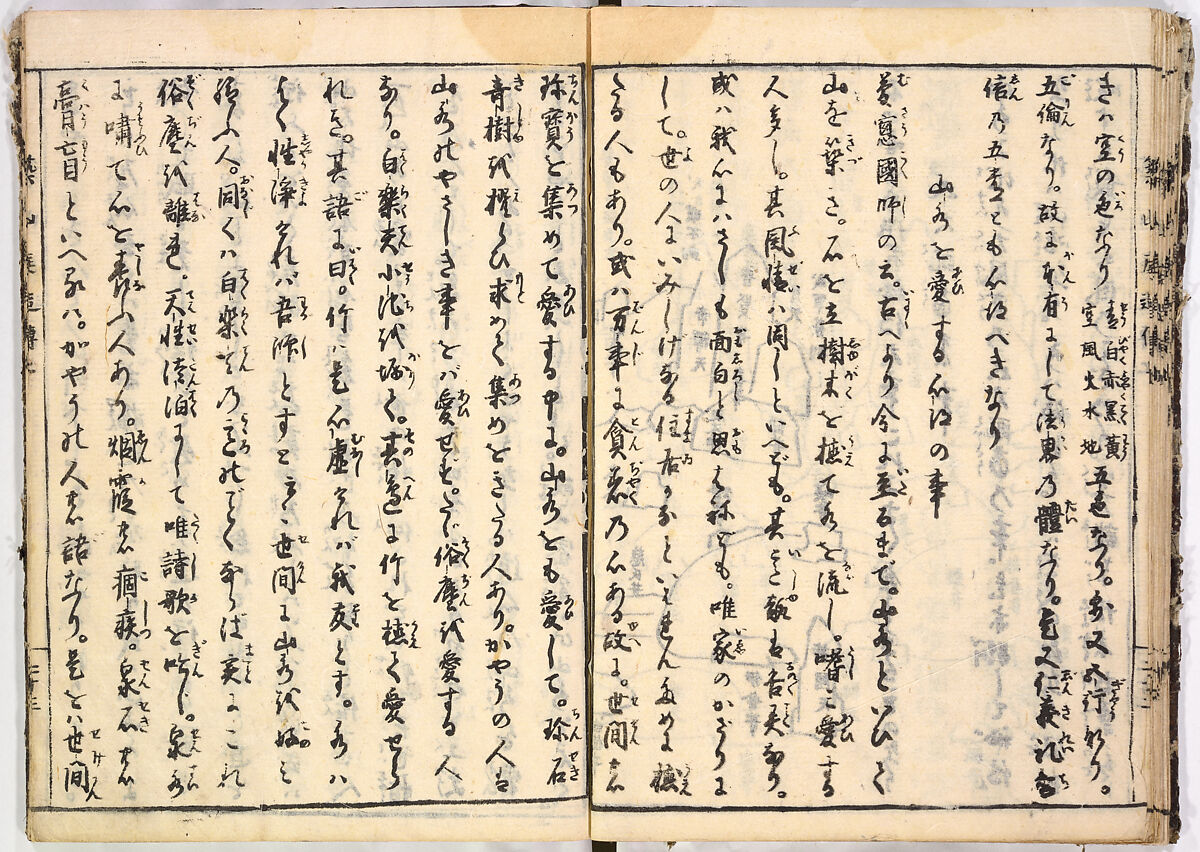 きハ空の色なり 青白赤黒黄 空風火水地 五色なり。又五行なり。
五倫なり。故に本有にして法界乃體なり。是又仁義礼智
信乃五常とも心得べきなり
山水を愛する心得の事
夢窓國師の云。古へより今に至るまで。山水といひて
山を築き。石を立樹木を植て水を流し。嗜ミ愛する
人多し。其風情ハ同しといへども。其意趣は各異なり。
或ハ我心にハさしも面白と思はねども。唯家のかざりに
して。世の人にいみしけなる住居かなといはれん為めに植
たる人もあり。或ハ万事に貪着乃心ある故に。世間の
珍寳を集めて愛する中に。山水をも愛して。珍石
奇樹を撰らひ求めて集めをきたる人あり。かやうの人は
山水のやさしき事をば愛せず。たゞ俗塵を愛する人
なり。白樂天小池を堀て。其邊に竹を植て愛せら
れき。其語に曰。竹ハ是心虚けれバ我友とす。水ハ
よく性浄けれバ吾師とすと云々世間に山水を好ミ
給ふ人。同くハ白樂天乃意のごとくならば実にこれ
俗塵を離れ。天性淡泊にして唯詩歌を吟じ。泉水
に嘯て心を養ふ人あり。烟霞の痼疾。泉石の
膏肓といへるハ。かやうの人の語なり。是をハ世間